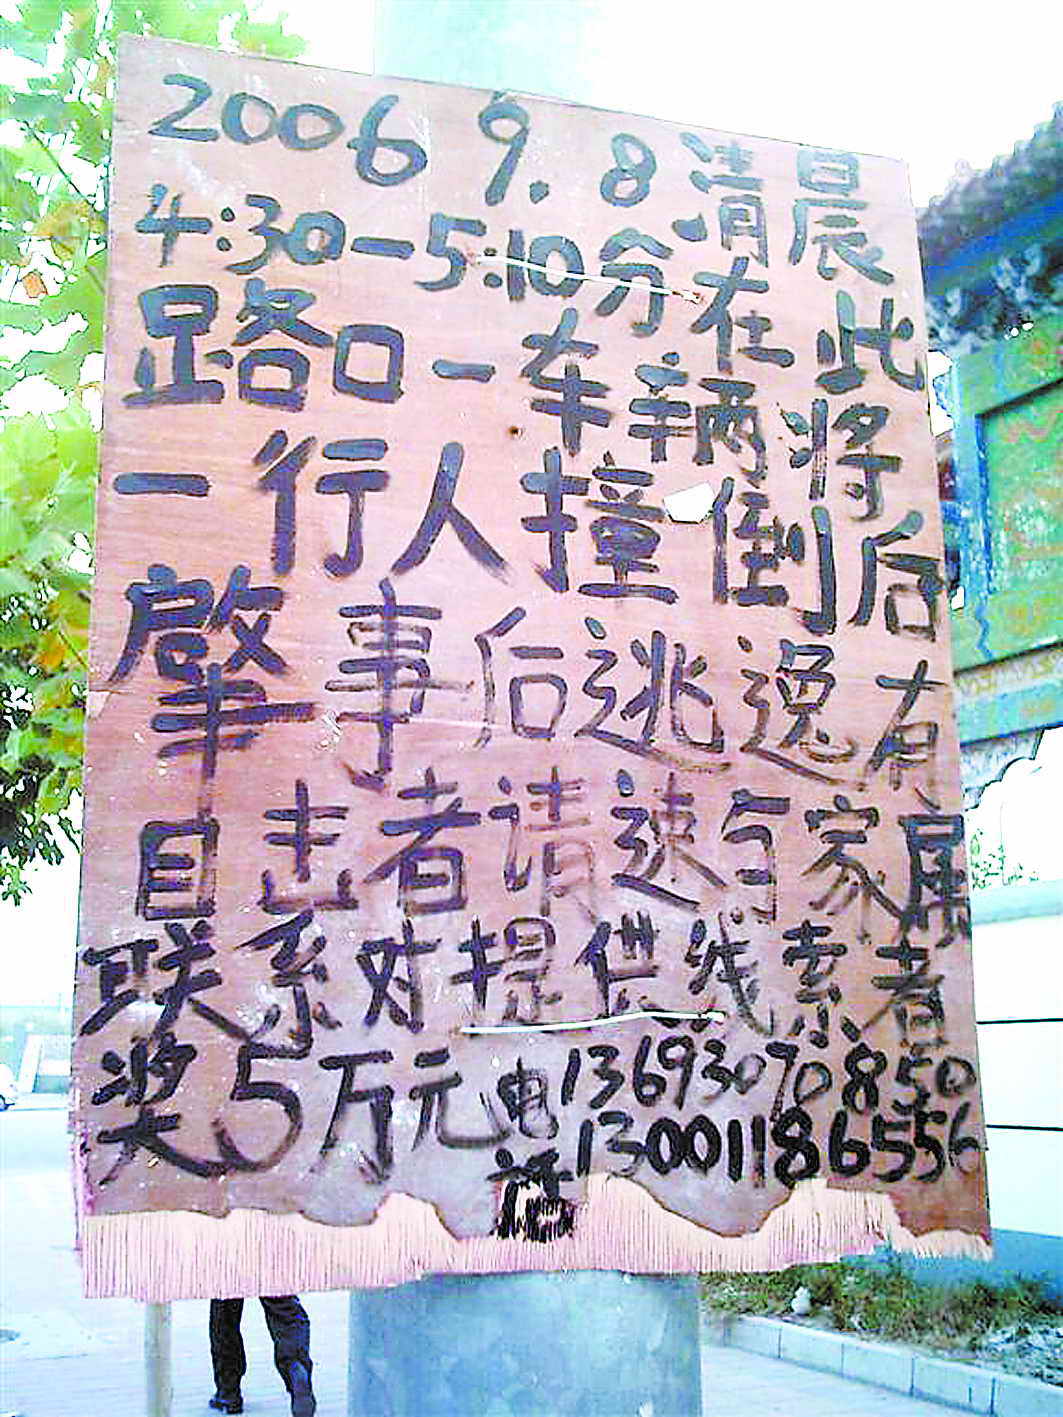 2006 9.8清晨
4:30-5:10分在此
路口一车辆将
一行人撞倒后
肇事后逃逸有
目击者请速与家属
联系对提供线索者
奖5万元电话13693070850
13001186556